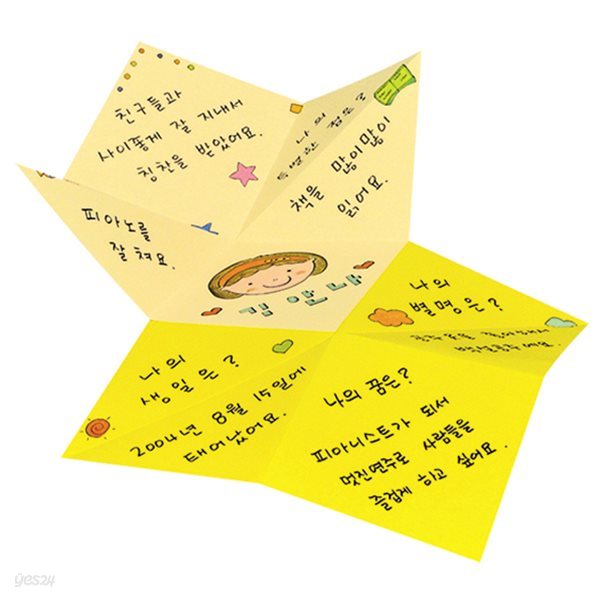 친구들과
사이좋게 잘 지내서
칭찬을 받았어요.
나의
특별한 점은?
책을 많이많이
읽어요.
피아노를
잘 쳐요.
김안나
나의
별명은?
나의
생일은?
2004년 8월 15일에
태어났어요.
나의 꿈은?
피아니스트가 되서
멋진연주로 사람들을
즐겁게 하고 싶어요.
yes24